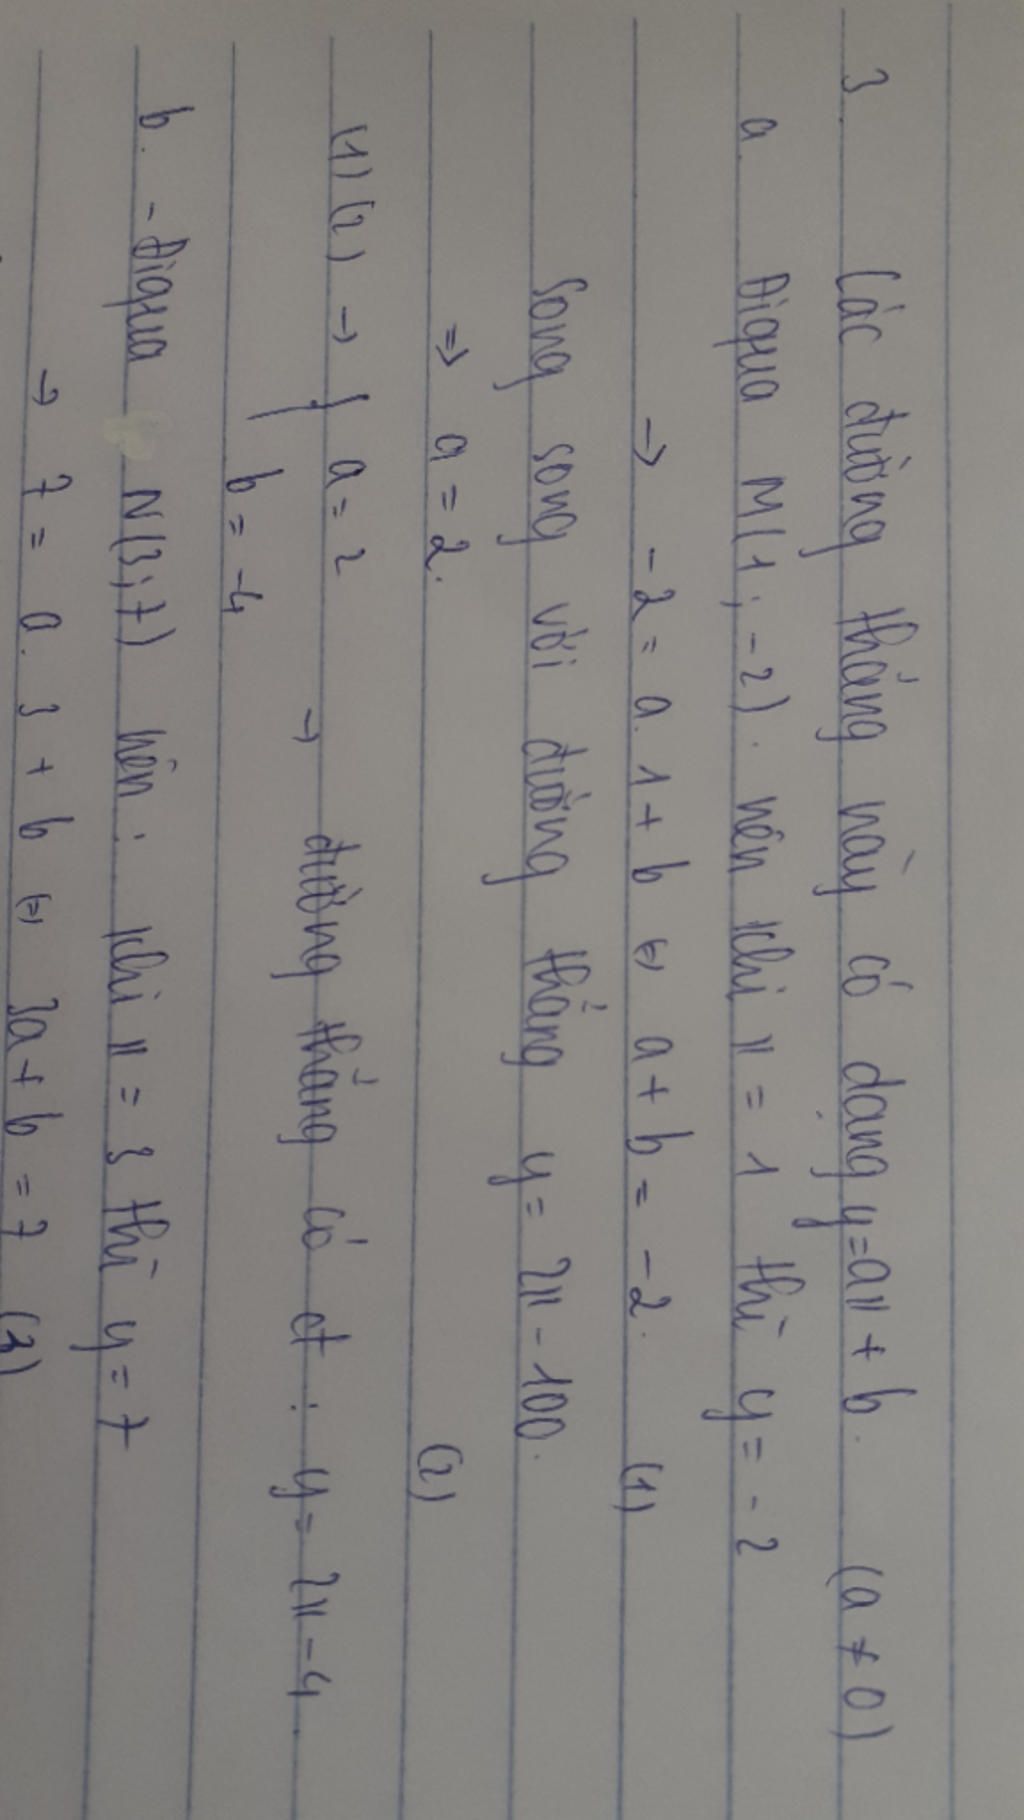 3. Các đường thẳng này có dạng y=ax + b. (a ≠ 0)
a. Đi qua M(1; -2). nên khi x = 1 thì y = -2
→ -2 = a. 1 + b ⇔ a + b = -2. (1)
Song song với đường thẳng y = 2x - 100.
⇒ a = 2. (2)
(1) (2) → { a = 2
b = -4
→ đường thẳng có ct : y = 2x - 4.
b. - Đi qua N(3; 7) nên : khi x = 3 thì y = 7
→ 7 = a. 3 + b ⇔ 3a + b = 7 (3)